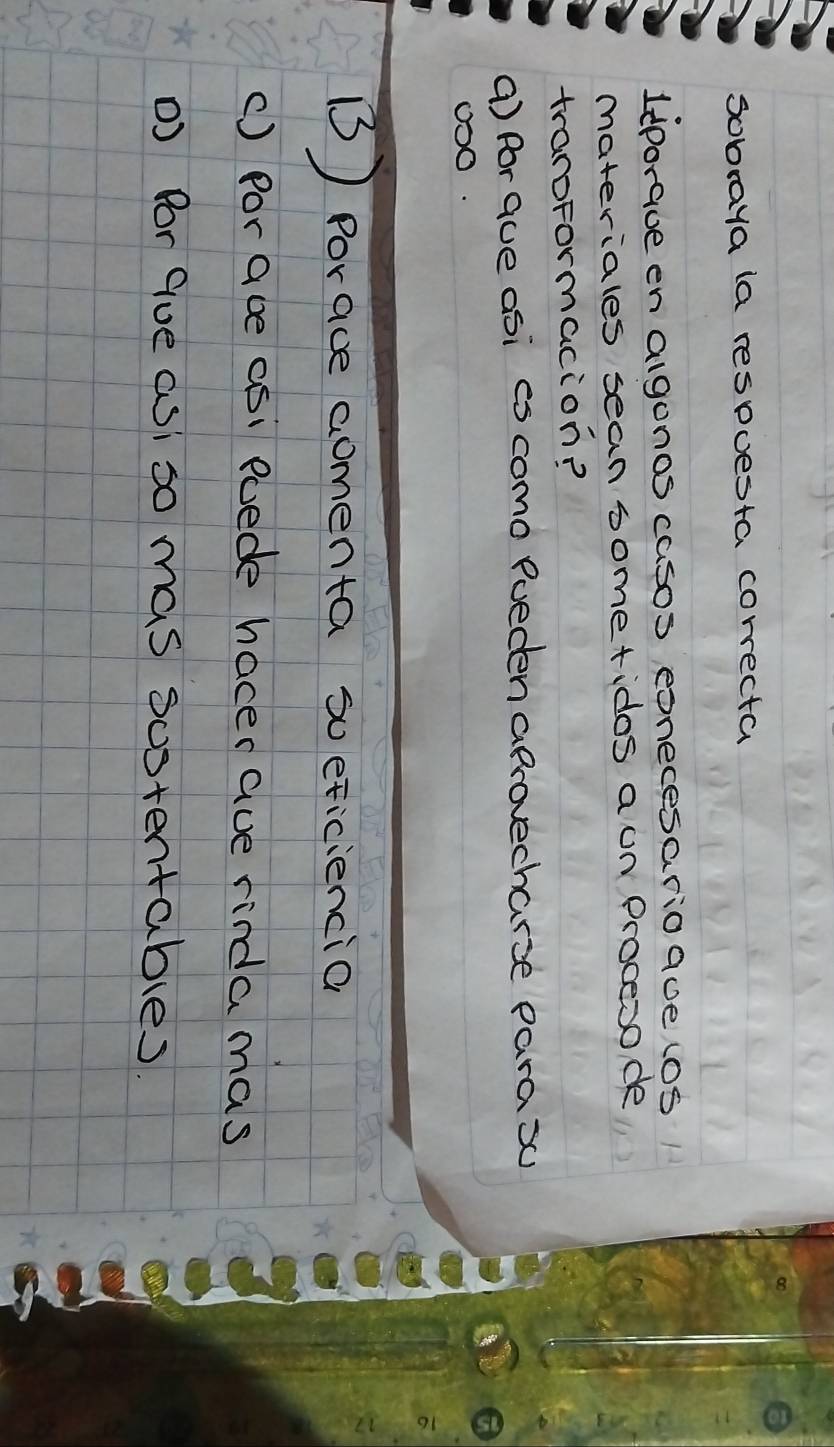 Sobraya la respuesta correcta
1¿porque en algunos casos es necesario que los
materiales sean sometidos a un proceso de
transformación?
a) Por que asi es como Pueden aprovecharse para su
uso.
B) Porque aumenta su eficiencia
c) Por que asi Puede hacer que rinda mas
D) Por que asi so mas sustentables.
8
10
11
13
14
15
16
17
19